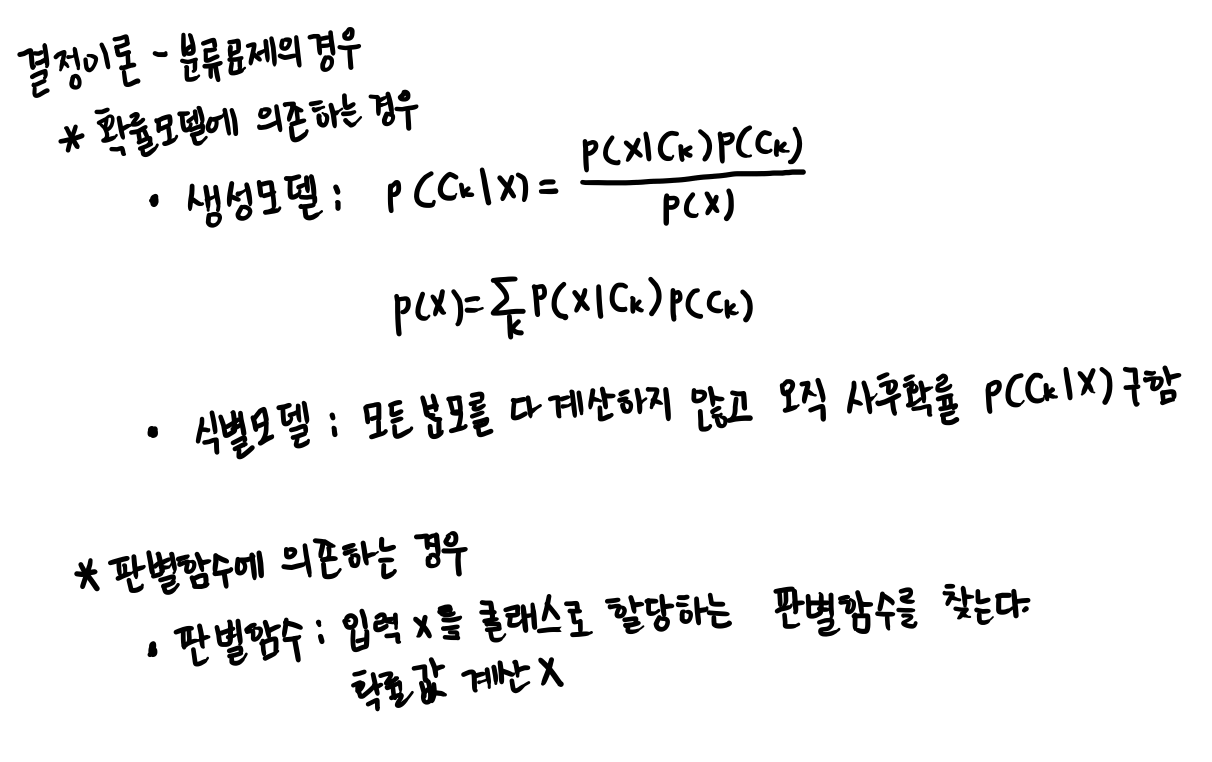 결정이론 - 분류문제의 경우
* 확률모델에 의존하는 경우
• 생성모델 : p(Ck|x) = p(x|Ck)p(Ck) / p(x)
p(x) = ∑k p(x|Ck)p(Ck)
• 식별모델 : 모든 분모를 다 계산하지 않고 오직 사후확률 p(Ck|x) 구함
* 판별함수에 의존하는 경우
• 판별함수 : 입력 x을 클래스로 할당하는 판별함수를 찾는다.
확률값 계산 X